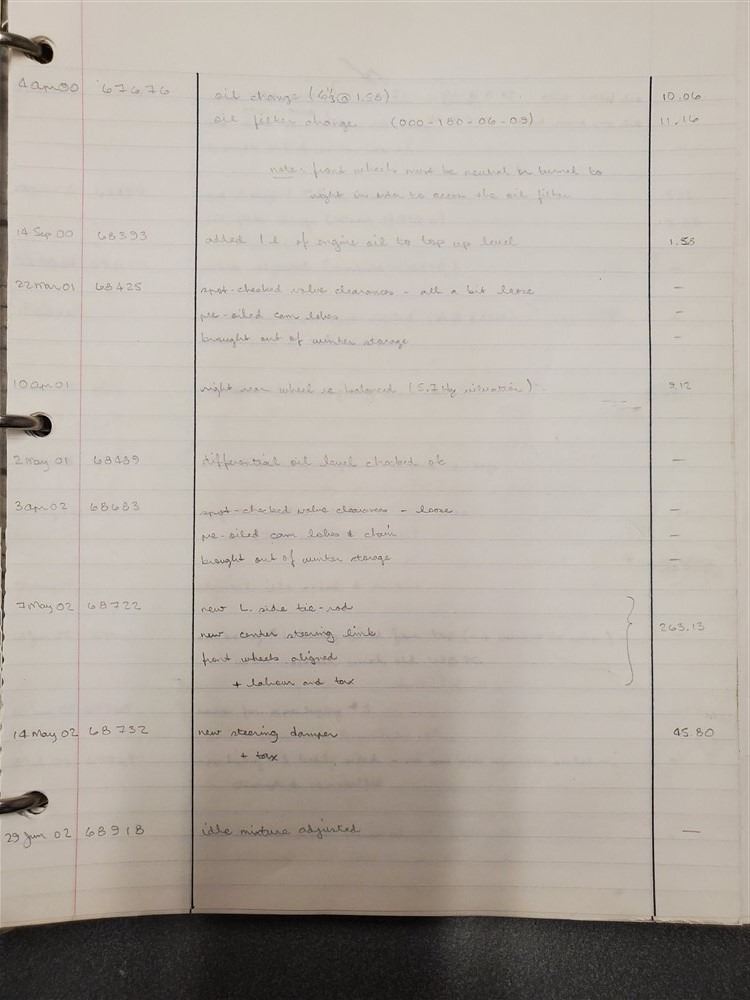 4 Apr 00 67676 oil change (6½ @ 1.58) 10.06
oil filter change (000-180-06-09) 11.16
note: front wheels must be neutral or turned to
right in order to access the oil filter
14 Sep 00 68393 added 1 l. of engine oil to top up level 1.58
22 Mar 01 68425 spot-checked valve clearances - all a bit loose -
pre-oiled cam lobes -
brought out of winter storage -
10 Apr 01 right rear wheel re balanced 9.12
2 May 01 68489 differential oil level checked ok -
3 Apr 02 68683 spot-checked valve clearances - loose -
pre-oiled cam lobes & chain -
brought out of winter storage -
7 May 02 68722 new L. side tie-rod
new center steering link 263.13
front wheels aligned
+ labour and tax
14 May 02 68732 new steering damper 45.80
+ tax
29 Jun 02 68918 idle mixture adjusted -